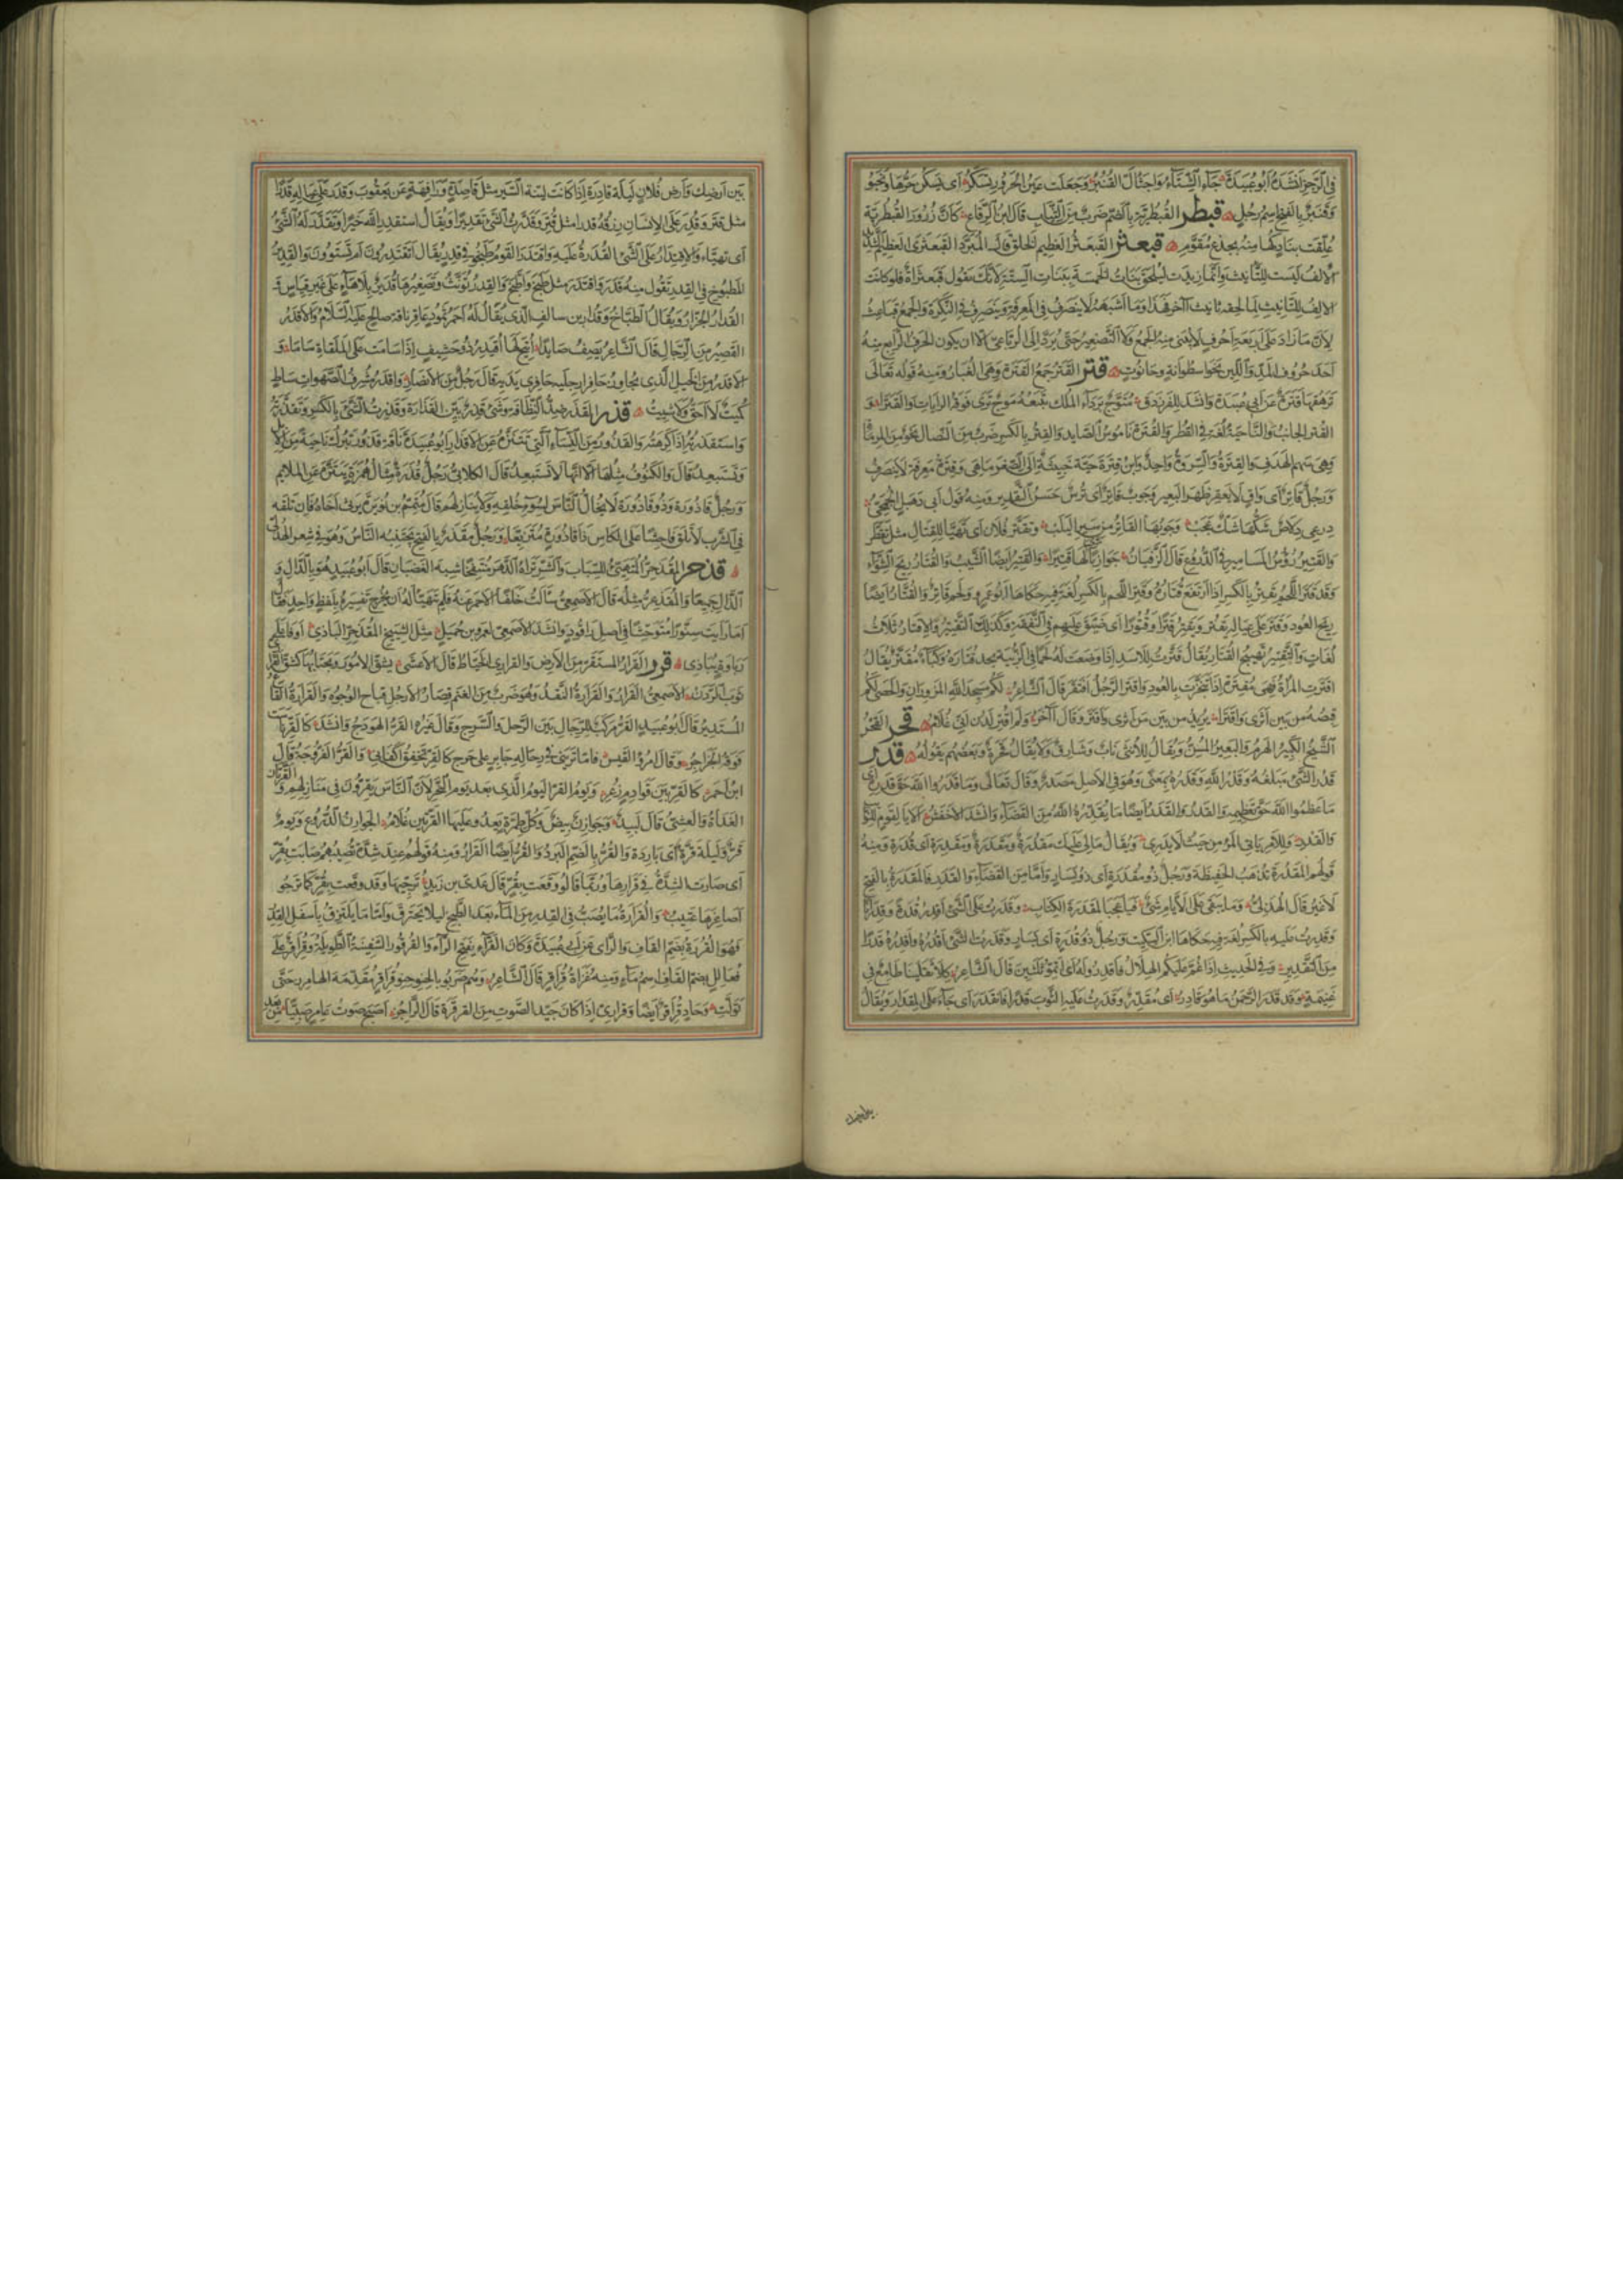 في الرجز انشده ابو عبيدة جآء الشتآء واجثال القنبر وجعلت عين الحرور تسكر اى يسكن حرها وتخبو
وقنبر بالفتح اسم رجل قبطر القبطرية بالضم ضرب من الثياب قال ابن الرقاع كان زرور القبطرية
علقت بنادكها منه بجذع مقوم قبعثر القبعثر العظيم الخلق قال المبرد القبعثرى العظيم الشديد
الالف ليست للتانيث وانما زيدت لتلحق بنات الخمسة ببنات الستة لانك تقول قبعثراة فلو كانت
الالف للتانيث لما لحقه تانيث آخر فهذا وما اشبهه لا ينصرف في المعرفة وينصرف في النكرة والجمع قباعث
لان ما زاد على اربعة احرف لا يبنى منه الجمع ولا التصغير حتى يرد الى الرباعي الا ان يكون الحرف الرابع منه
احد حروف المد واللين نحو اسطوانة وحانوت قتر القتر جمع القترة وهى الغبار ومنه قوله تعالى
ترهقها قترة عن ابي عبيدة وانشد للفرزدق متوج بردآء الملك يتبعه موج ترى فوقه الرايات والقترا و
القتر الجانب والناحية لغة في القطر والقترة ناموس الصايد والقتر بالكسر ضرب من النصال نحو من المرماة
وهى سهم الهدف والقترة والسروة واحد وابن قترة حية خبيثة الى الصغر ما هى وقترة معرفة لا ينصرف
ورجل قاتر اى واق لا يعقر ظهر البعير وجوب قاتر اى ترس حسن التقدير ومنه قول ابى دهبل الجمحى
درعى دلاص شكها شك عجب وجوبها القاتر من سير اليلب وتقتر فلان اى تهيا للقتال مثل تقطر
والقتير رؤس المسامير في الدروع قال الزفيان جوارنا ترى لها قتيرا والقتير ايضا الشيب والقتار ريح الشوآء
وقد قتر اللحم يقتر بالكسر اذا ارتفع قتاره وقتر اللحم بالكسر لغة فيه حكاها ابو عمرو ولحم قاتر والقتار ايضا
ريح العود وقتر على عياله يقتر ويقتر قترا وقتورا اى ضيق عليهم في النفقة وكذلك التقتير والاقتار ثلاث
لغات والتقتير تهييج القتار يقال قترت للاسد اذا وضعت له لحما في الزبية يجد قتاره وكبآء مقتر يقال
اقترت المراة فهى مقترة اذا تبخرت بالعود واقتر الرجل افتقر قال الشاعر لكم مسجدا الله المزوران والحصى لكم
قبصه من بين اثرى واقترا يريد من بين من اثرى واقتر وقال آخر ولم اقتر لدن انى غلام قحر القحر
الشيخ الكبير الهرم والبعير المسن ويقال للانثى ناب وشارف ولا يقال قحرة وبعضهم يقوله قدر
قدر الشئ مبلغه وقدر الله وقدره بمعنى وهو في الاصل مصدر وقال تعالى وما قدروا الله حق قدره اى
ما عظموا الله حق تعظيمه والقدر والقدر ايضا ما يقدره الله من القضآء وانشد الاخفش الا يا لقوم للنوائب
والقدر وللامر ياتى المرء من حيث لا يدرى ويقال ما لى عليك مقدرة ومقدرة ومقدرة اى قدرة ومنه
قولهم المقدرة تذهب الحفيظة ورجل ذو مقدرة اى ذو يسار واما من القضآء والقدر فالمقدرة بالفتح
لا غير قال الهذلى وما يبقى على الايام شئ فيا عجبا لمقدرة الكتاب وقدرت على الشئ اقدر قدرة وقدرانا
وقدرت عليه بالكسر لغة فيه حكاها ابن السكيت ورجل ذو قدرة اى يسار وقدرت الشئ اقدره واقدره قدرا
من التقدير وفي الحديث اذا غم عليكم الهلال فاقدروا له اى اتموا ثلثين قال الشاعر كلا ثقلينا طامع في
غنيمة وقد قدر الرحمن ما هو قادر اى مقدر وقدرت عليه الثوب قدرا فانقدر اى جآء على المقدار ويقال
بين ارضك وارض فلان ليلة قادرة اذا كانت لينة السير مثل قاصدة ورافهة عن يعقوب وقدر على عياله قدرا
مثل قتر وقدر على الانسان رزقه قدرا مثل قتر وقدرت الشئ تقديرا ويقال استقدر الله خيرا وتقدر له الشئ
اى تهياء والاقتدار على الشئ القدرة عليه واقتدر القوم طبخوا في قدر يقال اتقتدرون ام تشتوون والقدير
المطبوخ في القدر تقول منه قدر واقتدر مثل طبخ واطبخ والقدر تؤنث وتصغيرها قدير بلا هآء على غير قياس
القدار الجزار ويقال الطباخ وقدار بن سالف الذى يقال له احمر ثمود عاقر ناقة صالح عليه السلام والاقدر
القصير من الرجال قال الشاعر يصف صايدا اتيح لها اقيدر ذو حشيف اذا سامت على الملقاة ساما و
الاقدر من الخيل الذى يجاوز حافرا رجليه حافرى يديه قال رجل من الانصار واقدر مشرف الصهوات ساط
كميت لا احق ولا شئيت قذر القذر ضد النظافة وشئ قذر بين القذارة وقذرت الشئ بالكسر وتقذرته
واستقذرته اذا كرهته والقذور من النسآء التى تتنزه عن الاقذار ابو عبيدة ناقة قذور تبرك ناحية من الابل
وتستبعد قال والكنوف مثلها الا انها لا تستبعد قال الكلابى رجل قذرة مثال همزة يتنزه عن الملايم
ورجل قاذورة وذو قاذورة لا يخال الناس لسوء خلقه ولا ينازلهم قال متمم بن نويرة يرثى اخاه فان تلقه
في الشرب لا تلق فاحشا على الكاس ذا قاذورة متزبعا ورجل مقذر بالفتح تجتنبه الناس وهو في شعر الهذلى
قذحر المقذحر المتهيئ للسباب والشر تراه الدهر منتفخا شبه الغضبان قال ابو عبيد هو بالدال و
الذال جميعا والمقذعر مثله قال الاصمعى سالت خلفا الاحمر عنه فلم يتهيا له ان يخرج تفسيره بلفظ واحد فقال
اما رايت سنورا متوحشا في اصل راقود وانشد الاصمعى لعمرو بن جميل مثل الشييخ المقذحر الباذى اوفى على
رباوة يباذى قرر القرار المستقر من الارض والقرارى الخياط قال الاعشى يشق الامور ويجتابها كشق القرارى
ثوب الردن الاصمعى القرار والقرارة النقد وهو ضرب من الغنم قصار الارجل قباح الوجوه والقرارة القاع
المستدير قال ابو عبيد القر مركب للرجال بين الرحل والسرج وقال غيره القر الهودج وانشد كالقر ناست
فوقه الجزاجز وقال امرؤ القيس فاما ترينى في رحالة جابر على حرج كالقر تخفق اكفانى والقر الفروجة قال
ابن احمر كالقر بين قوادم زعر ويوم القر اليوم الذى بعد يوم النحر لان الناس يقرون في منازلهم والقرتان
الغداة والعشى قال لبيد وجوارن بيض وكل طمرة يعدو عليها القرتين غلام الجوارن الدروع ويوم
قر وليلة قرة اى باردة والقر بالضم البرد والقر ايضا القرار ومنه قولهم عند شدة تصيبهم صابت بقر
اى صارت الشدة في قرارها وربما قالوا وقعت بقر قال عدى بن زيد ترجيها وقد وقعت بقر كما ترجو
اصاغرها عتيب والقرارة ما يصب في القدر من المآء بعد الطبخ ليلا يحترق واما ما يلتزق باسفل القدر
فهو القررة بضم القاف والرآى عن ابى عبيدة وكان الفرآء يفتح الرآء والقرقور السفينة الطويلة وقراقر على
فعالل بضم القاف اسم مآء ومنه غزاة قراقر قال الشاعر وهم ضربوا بالحنو حنو قراقر مقدمة الهامرز حتى
تولت وحاد قراقر ايضا وقراقرى اذا كان جيد الصوت من القرقرة قال الراجز اصبح صوت عامر صئيا من بعد
بين ارضك